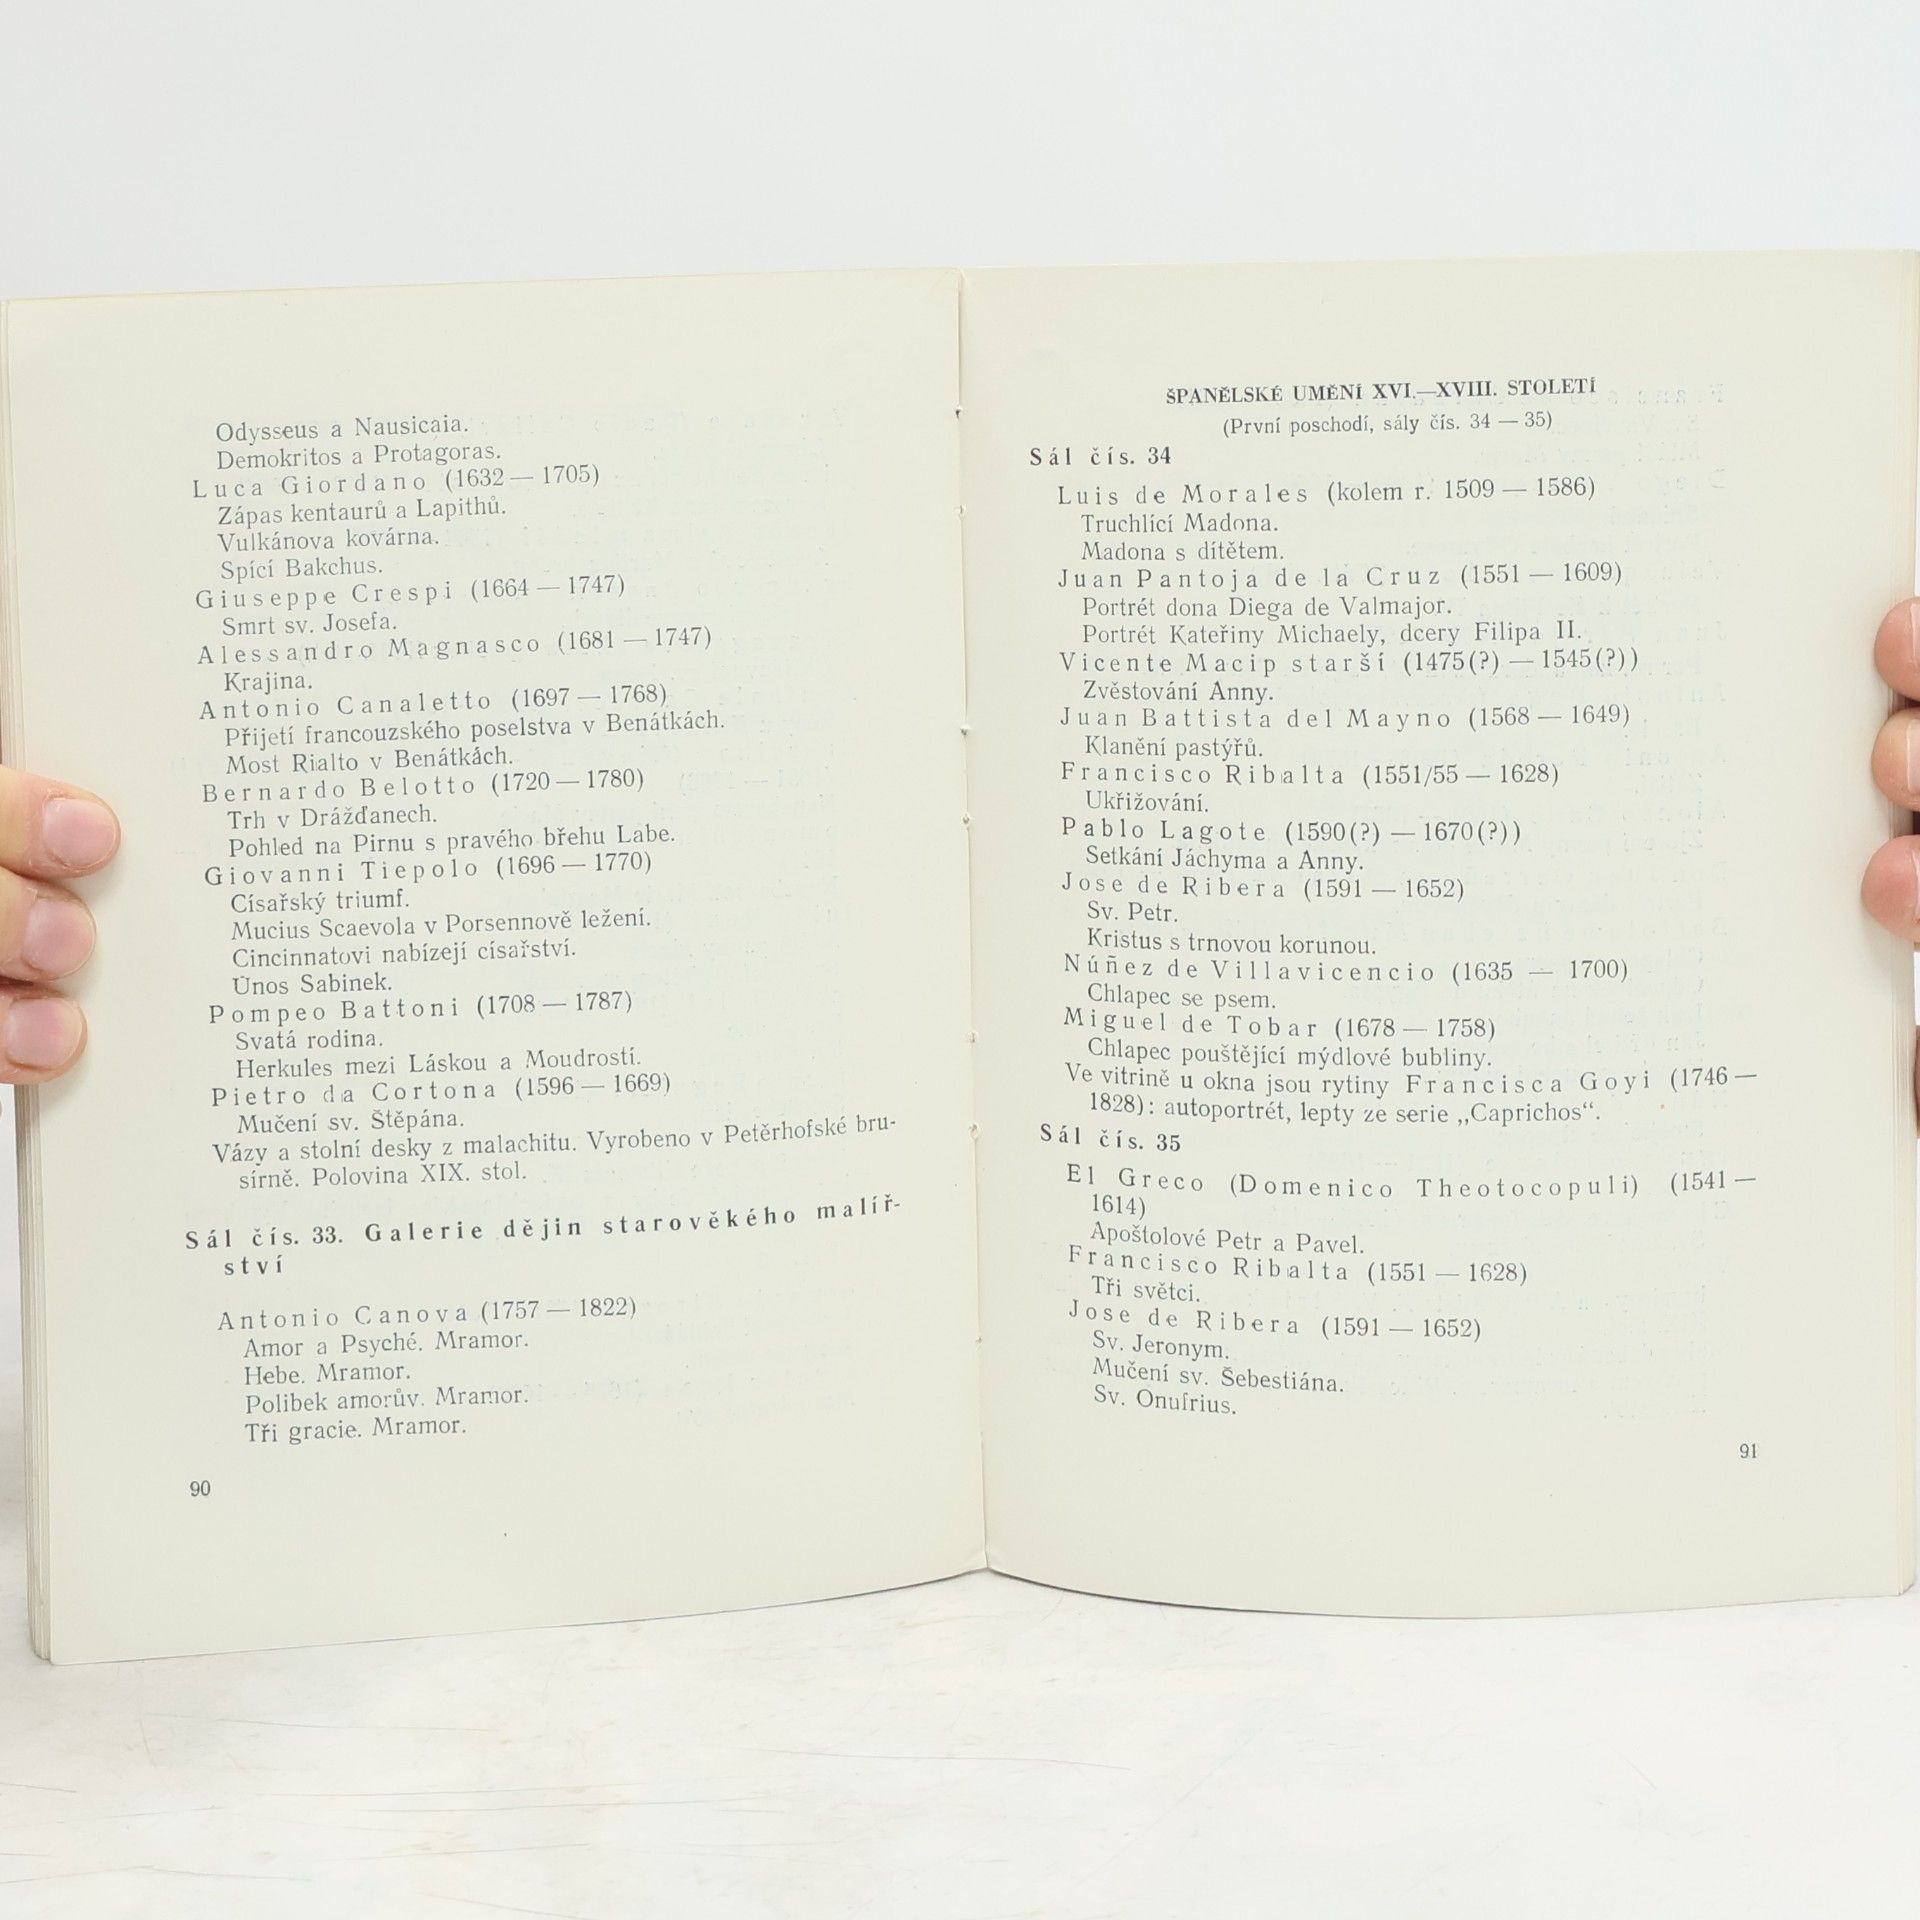 Odysseus a Nausicaia.
Demokritos a Protagoras.
Luca Giordano (1632 — 1705)
Zápas kentaurů a Lapithů.
Vulkánova kovárna.
Spící Bakchus.
Giuseppe Crespi (1664 — 1747)
Smrt sv. Josefa.
Alessandro Magnasco (1681 — 1747)
Krajina.
Antonio Canaletto (1697 — 1768)
Přijetí francouzského poselstva v Benátkách.
Most Rialto v Benátkách.
Bernardo Belotto (1720 — 1780)
Trh v Drážďanech.
Pohled na Pirnu s pravého břehu Labe.
Giovanni Tiepolo (1696 — 1770)
Císařský triumf.
Mucius Scaevola v Porsennově ležení.
Cincinnatovi nabízejí císařství.
Únos Sabinek.
Pompeo Battoni (1708 — 1787)
Svatá rodina.
Herkules mezi Láskou a Moudrostí.
Pietro da Cortona (1596 — 1669)
Mučení sv. Štěpána.
Vázy a stolní desky z malachitu. Vyrobeno v Petěrhofské bru-
sírně. Polovina XIX. stol.
Sál čís. 33. Galerie dějin starověkého malíř-
ství
Antonio Canova (1757 — 1822)
Amor a Psyché. Mramor.
Hebe. Mramor.
Polibek amorův. Mramor.
Tři gracie. Mramor.
90
ŠPANĚLSKÉ UMĚNÍ XVI.—XVIII. STOLETÍ
(První poschodí, sály čís. 34 — 35)
Sál čís. 34
Luis de Morales (kolem r. 1509 — 1586)
Truchlící Madona.
Madona s dítětem.
Juan Pantoja de la Cruz (1551 — 1609)
Portrét dona Diega de Valmajor.
Portrét Kateřiny Michaely, dcery Filipa II.
Vicente Macip starší (1475(?) — 1545(?))
Zvěstování Anny.
Juan Battista del Mayno (1568 — 1649)
Klanění pastýřů.
Francisco Ribalta (1551/55 — 1628)
Ukřižování.
Pablo Lagote (1590(?) — 1670(?))
Setkání Jáchyma a Anny.
Jose de Ribera (1591 — 1652)
Sv. Petr.
Kristus s trnovou korunou.
Núñez de Villavicencio (1635 — 1700)
Chlapec se psem.
Miguel de Tobar (1678 — 1758)
Chlapec pouštějící mýdlové bubliny.
Ve vitrině u okna jsou rytiny Francisca Goyi (1746 —
1828): autoportrét, lepty ze serie „Caprichos“.
Sál čís. 35
El Greco (Domenico Theotocopuli) (1541 —
1614)
Apoštolové Petr a Pavel.
Francisco Ribalta (1551 — 1628)
Tři světci.
Jose de Ribera (1591 — 1652)
Sv. Jeronym.
Mučení sv. Šebestiána.
Sv. Onufrius.
91